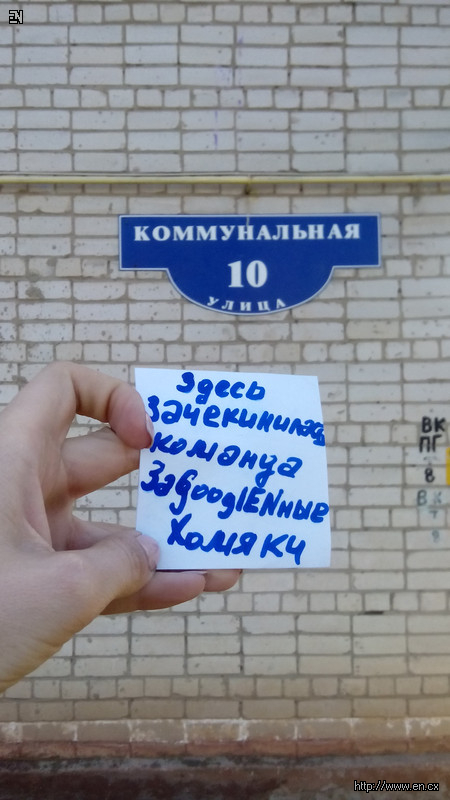 EN
КОММУНАЛЬНАЯ
10
УЛИЦА
Здесь
зачекинилась
команда
ЗаGooglENные
Хомяки
ВК
ПГ
В
http://www.en.cx